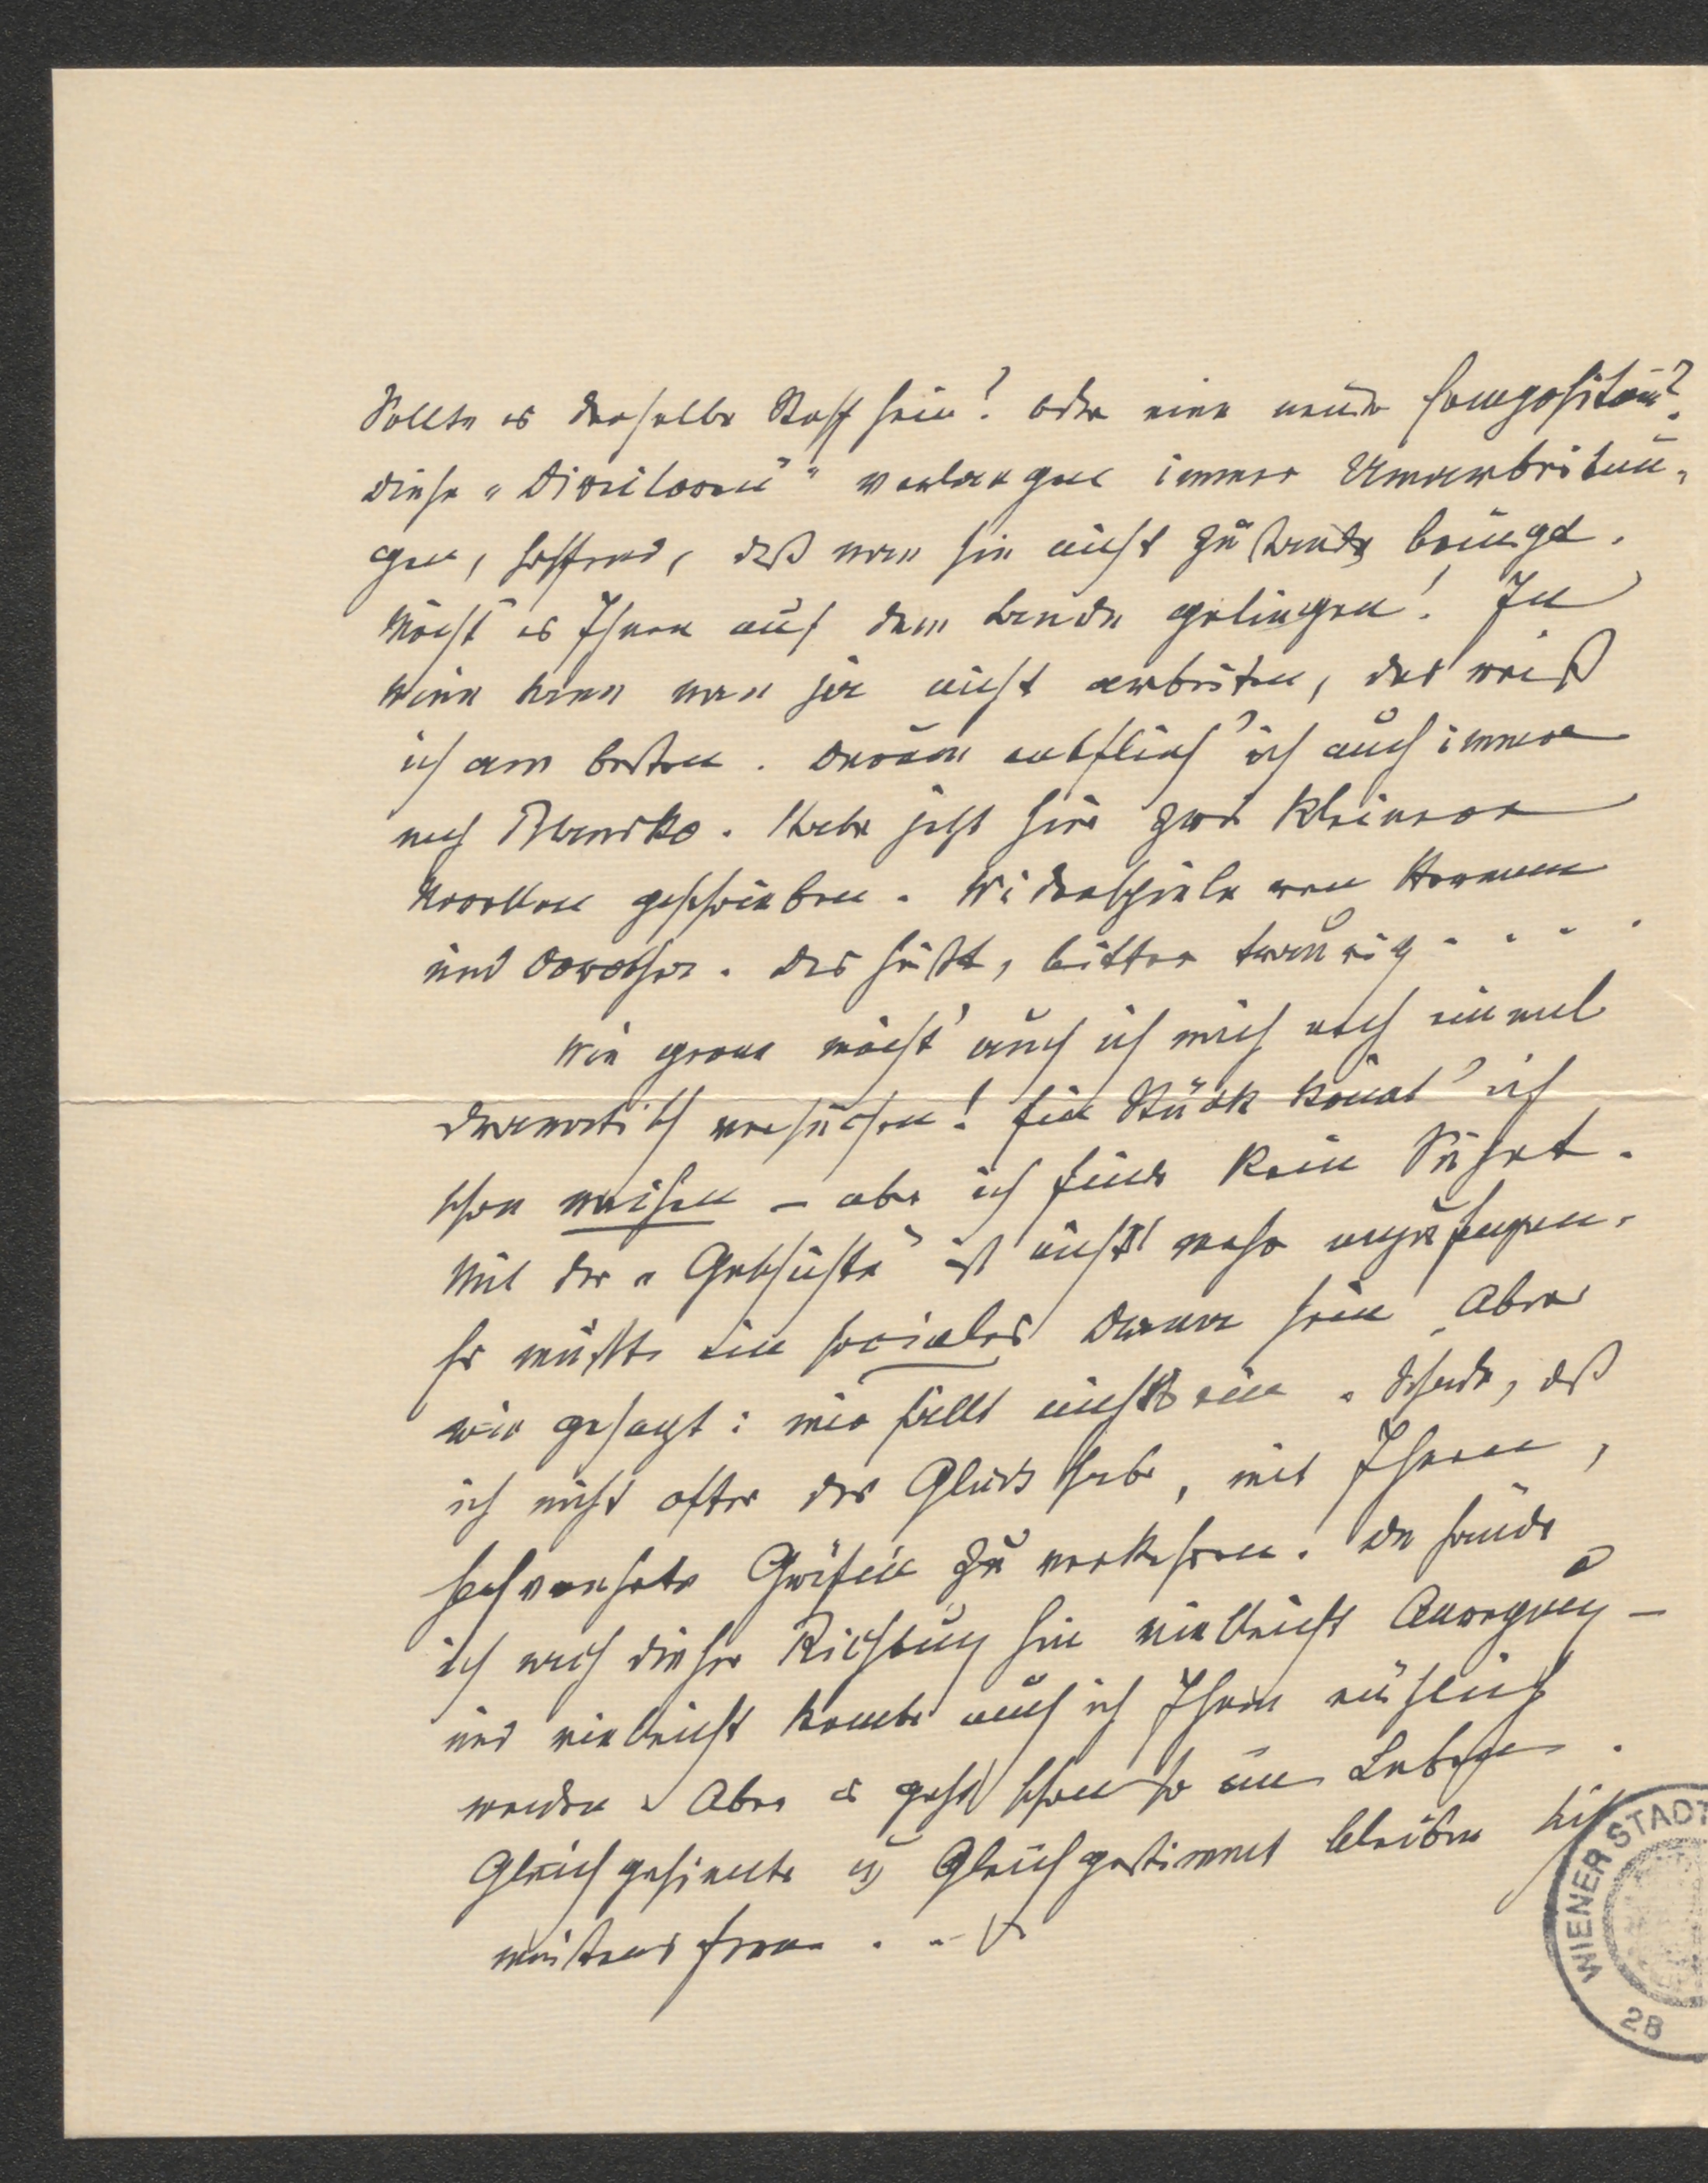 Sollte es derselbe Stoff sein? oder eine neue Composition?
Diese „Direktoren" verlangen immer Umarbeitun-
gen, hoffend, daß man sie nicht zu Stande bringt.
Möcht' es Ihnen auf dem Lande gelingen! In
Wien kann man ja nicht arbeiten, das weiß
ich am besten. Darum entflieh' ich auch immer
nach Blansko. Habe jetzt hier zwei kleinere
Novellen geschrieben. Widerspiele von Hermann
und Dorothea. Das heißt, bitter traurig . . . .
Wie gerne möcht' auch ich mich noch einmal
dramatisch versuchen! Ein Stück könnt' ich
schon machen – aber ich finde kein Sujet.
Mit der „Geschichte" ist nichts mehr anzufangen.
Es müßte ein sociales Drama sein. Aber
wie gesagt: mir fällt nichts ein. Schade, daß
ich nicht öfter das Glück habe, mit Ihnen,
hochverehrte Gräfin zu verkehren. Da fände
ich nach dieser Richtung hin vielleicht Anregung –
und vielleicht könnte auch ich Ihnen nützlich
werden. Aber es geht schon so im Leben.
Gleichgesinnte u Gleichgestimmte bleiben sich
meistens fern . . .
WIENER STADT
28